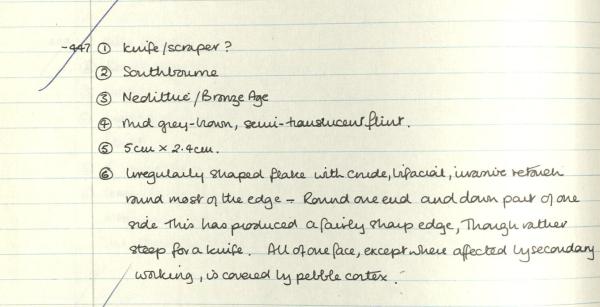 -447 ① Knife/scraper?
② Southbourne
③ Neolithic/Bronze Age
④ Mid grey-brown, semi-translucent flint.
⑤ 5cm × 2.4cm.
⑥ Irregularly shaped flake with crude, bifacial, invasive retouch
round most of the edge – Round one end and down part of one
side This has produced a fairly sharp edge, Though rather
steep for a knife. All of one face, except where affected by secondary
working, is covered by pebble cortex.